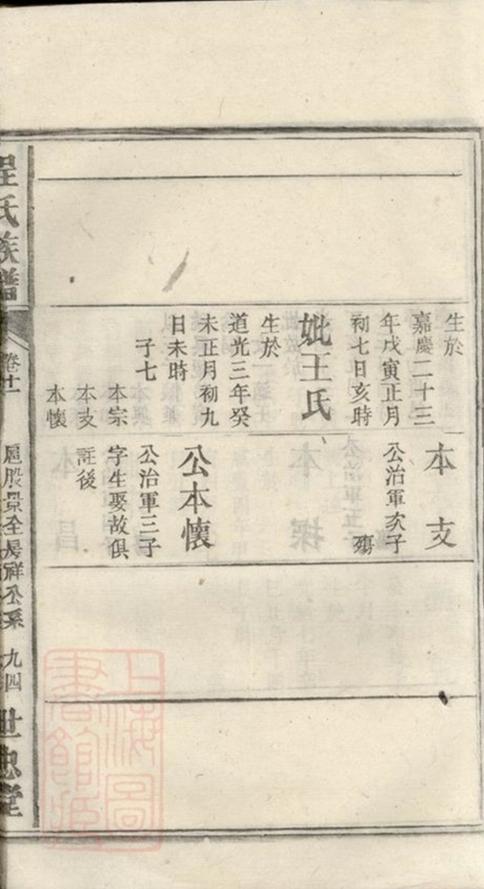 生於
嘉慶二十三
年戊寅正月
初七日亥時
妣王氏
生於
道光三年癸
未正月初九
日未時
子七
本宗
本支
本懷
本支
公治軍次子
殤
公本懷
公治軍三子
字生娶故俱
註後
程氏族譜
卷十一
祥公系
九四
世忠堂
上海圖
書館藏